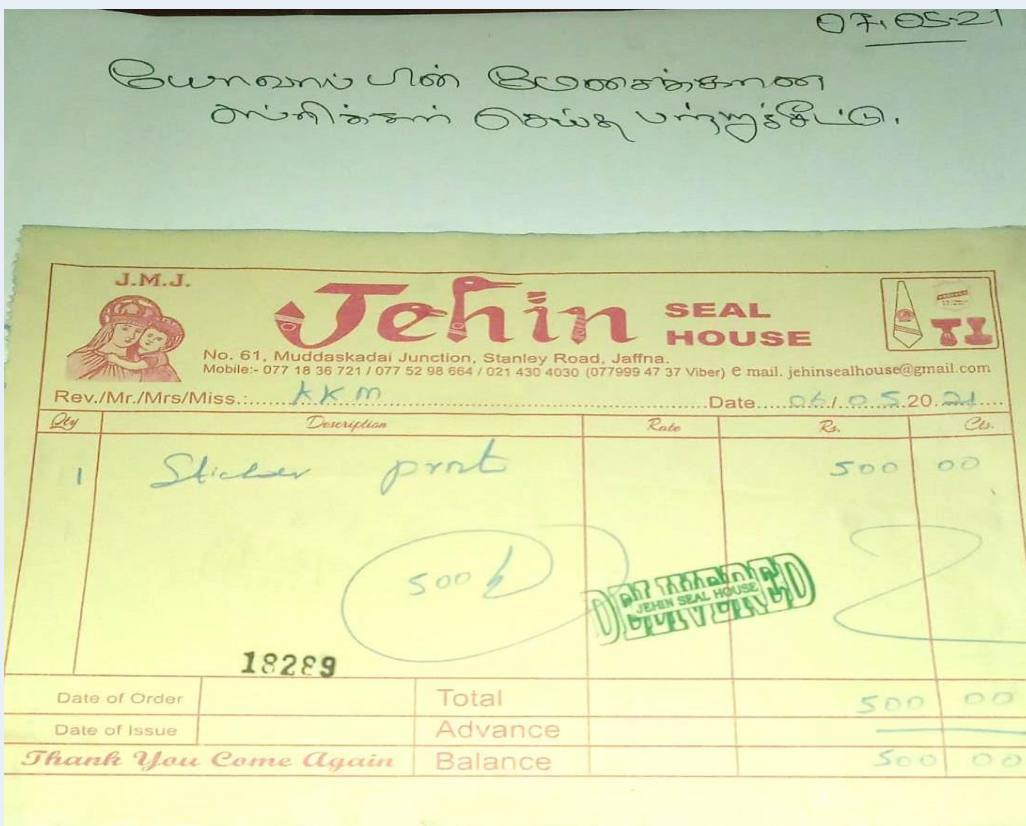 07.05.21
மேசைக்கான
செய்த பற்றுச்சீட்டு.
J.M.J.
Jehin SEAL HOUSE
No. 61, Muddaskadai Junction, Stanley Road, Jaffna.
Mobile:- 077 18 36 721 / 077 52 98 664 / 021 430 4030 (077999 47 37 Viber) e mail. jehinsealhouse@gmail.com
Rev./Mr./Mrs/Miss.:..... KKM ..... Date.... 06/05.20.21....
Qty Description Rate Rs. Cts.
1 Sticker print 500 00
500
DELIVERED
JEHIN SEAL HOUSE
18289
Date of Order Total 500 00
Date of Issue Advance
Thank You Come Again Balance 500 00